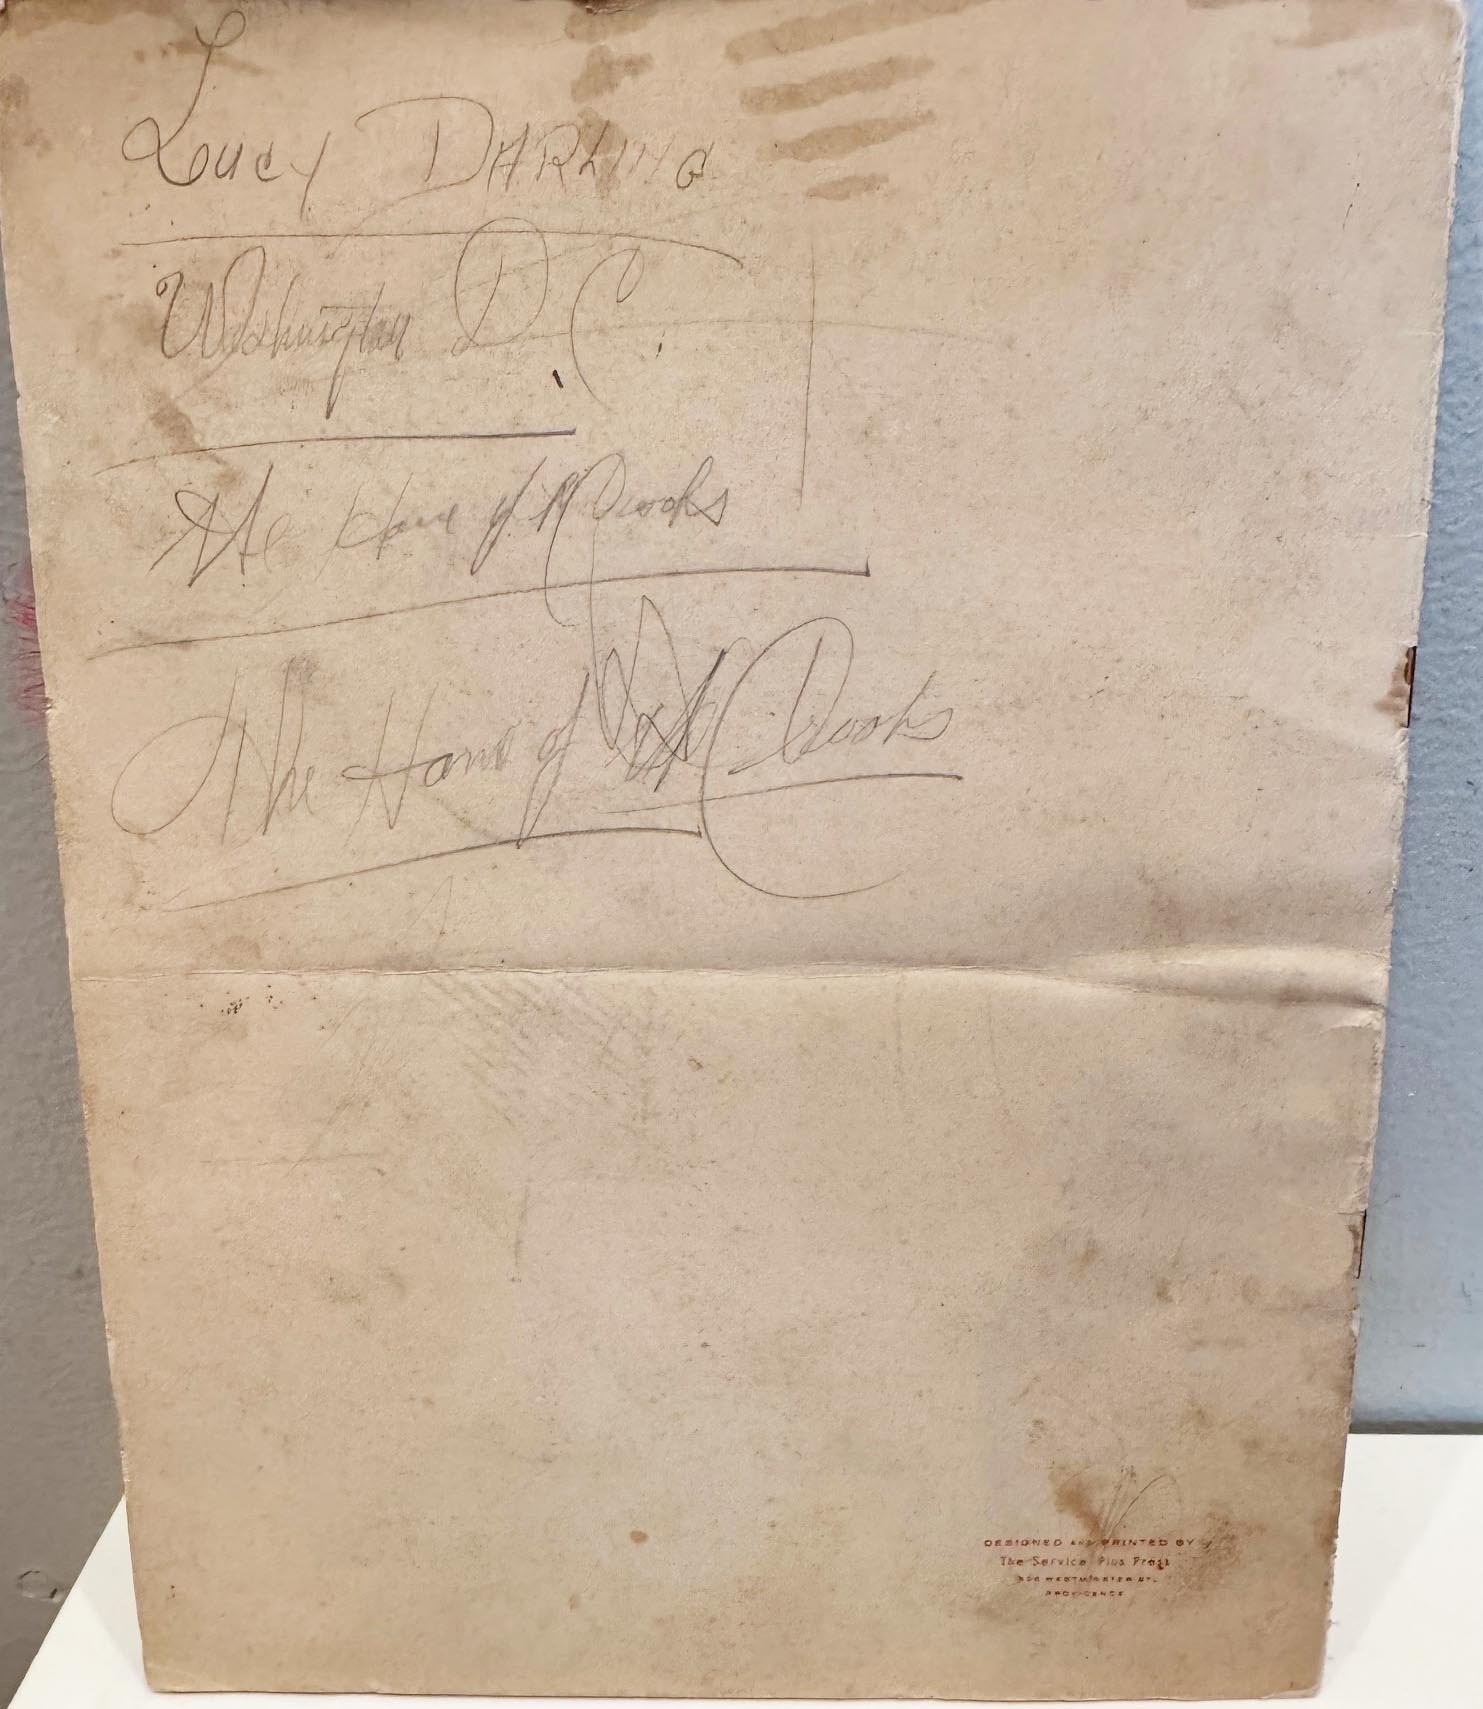 Lucy DARLING
Washington D.C.
The Home of Crooks
The Home of Crooks
DESIGNED AND PRINTED BY
The Service Plus Press
WESTMINSTER ST.
PROVIDENCE